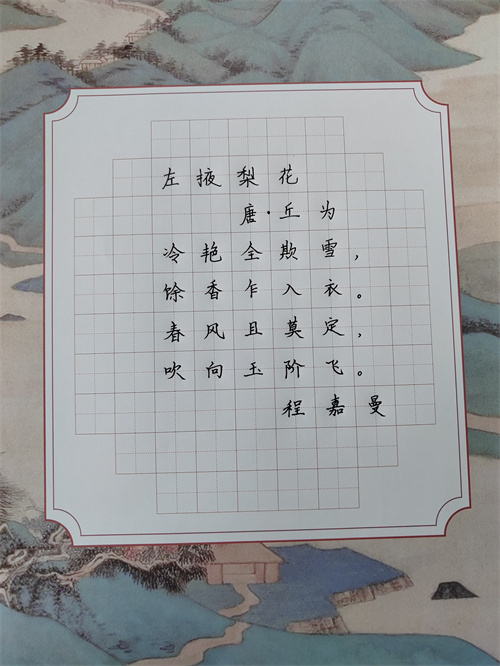 左掖梨花
唐·丘为
冷艳全欺雪，
馀香乍入衣。
春风且莫定，
吹向玉阶飞。
程嘉曼